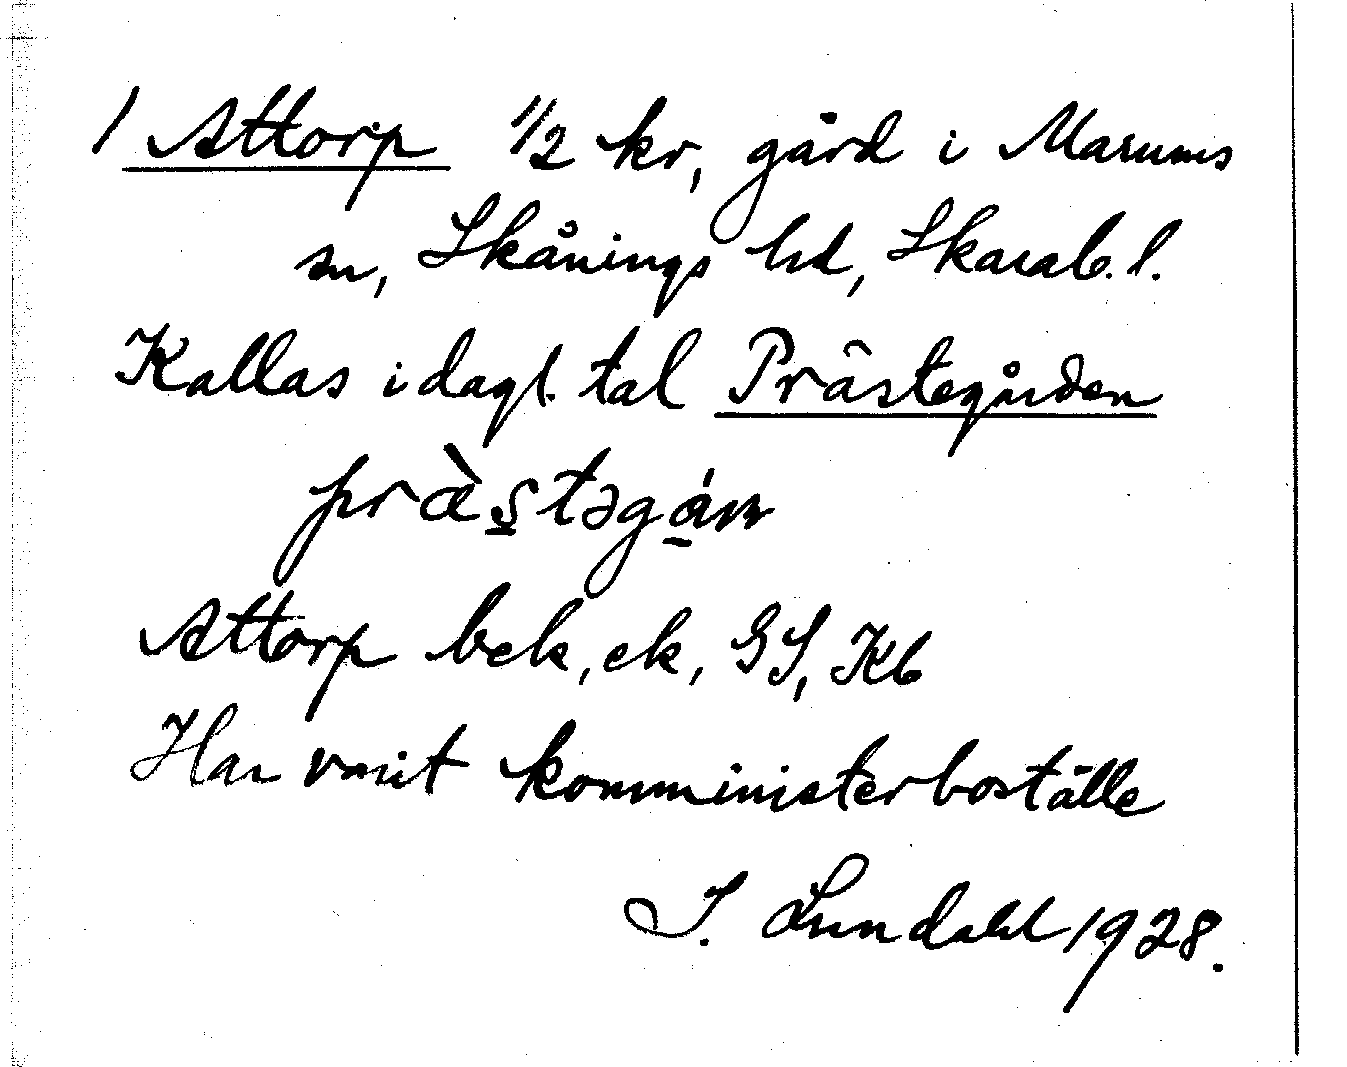 1 Attorp 1/2 kr, gård i Marums
sn, Skånings hd, Skarab. l.
Kallas i dagl. tal Prästegården
Attorp bek, ek, GS, Kb
Har varit komministerboställe
I. Lundahl 1928.